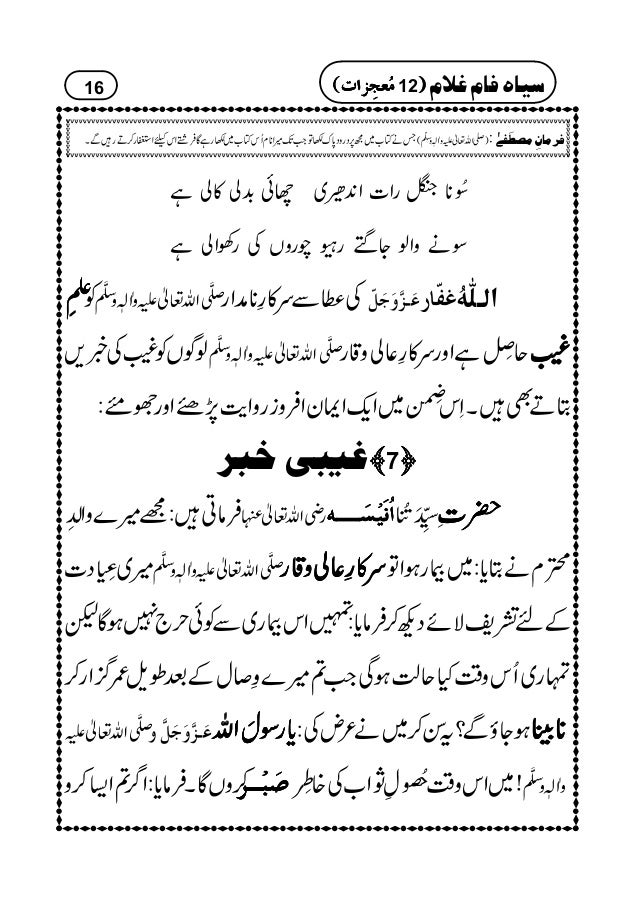 سیاہ فام غلام (12 مُعجِزات)
16
فرمانِ مصطَفٰے : (صلی اللہ تعالیٰ علیہ واٰلہٖ وسلّم) جس نے کتاب میں مجھ پر درود پاک لکھا تو جب تک میرا نام اُس کتاب میں لکھا رہے گا فرشتے اس کیلئے استغفار کرتے رہیں گے۔
سُونا جنگل رات اندھیری چھائی بدلی کالی ہے
سونے والو جاگتے رہیو چوروں کی رکھوالی ہے
اللّٰہُ غفّار عَزَّوَجَلَّ کی عطا سے سرکارِ نامدار صلَّی اللہ تعالیٰ علیہ واٰلہٖ وسلَّم کو علمِ
غیب حاصِل ہے اور سرکارِ عالی وقار صلَّی اللہ تعالیٰ علیہ واٰلہٖ وسلَّم لوگوں کو غیب کی خبریں
بتاتے بھی ہیں۔ اِس ضِمن میں ایک ایمان افروز روایت پڑھئے اور جھومئے :
﴿7﴾ غیبی خبر
حضرتِ سیِّدَتُنا اُنَیْسَہ رضی اللہ تعالیٰ عنہا فرماتی ہیں: مجھے میرے والدِ
محترم نے بتایا: میں بیمار ہوا تو سرکارِ عالی وقار صلَّی اللہ تعالیٰ علیہ واٰلہٖ وسلَّم میری عِیادت
کے لئے تشریف لائے دیکھ کر فرمایا: تمہیں اس بیماری سے کوئی حرج نہیں ہوگا لیکن
تمہاری اُس وقت کیا حالت ہوگی جب تم میرے وِصال کے بعد طویل عمر گزار کر
نابینا ہو جاؤ گے؟ یہ سن کر میں نے عرض کی: یارسولَ اللہ عَزَّوَجَلَّ وصلَّی اللہ تعالیٰ علیہ
واٰلہٖ وسلَّم! میں اس وقت حُصولِ ثواب کی خاطِر صَبْر کروں گا۔ فرمایا: اگر تم ایسا کرو